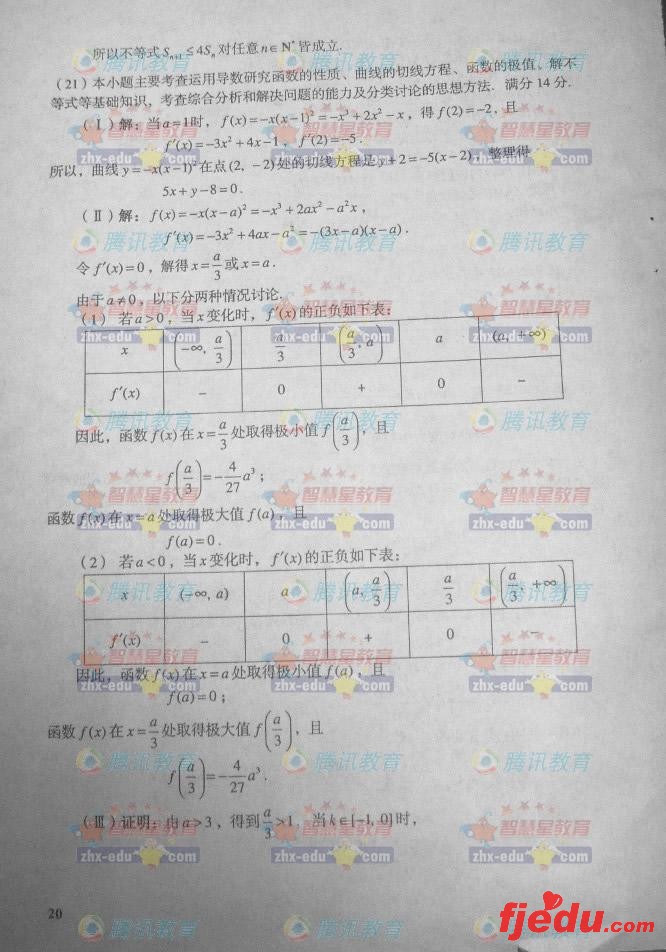 所以不等式 Sₙ₊₁≤4Sₙ 对任意 n∈N* 皆成立.
(21) 本小题主要考查运用导数研究函数的性质、曲线的切线方程、函数的极值、解不
等式等基础知识，考查综合分析和解决问题的能力及分类讨论的思想方法. 满分 14 分.
(Ⅰ) 解：当a=1时，f(x)=-x(x-1)²=-x³+2x²-x，得f(2)=-2，且
f′(x)=-3x²+4x-1，f′(2)=-5.
所以，曲线y=-x(x-1)²在点(2, -2)处的切线方程是y+2=-5(x-2)，整理得
5x+y-8=0.
(Ⅱ) 解：f(x)=-x(x-a)²=-x³+2ax²-a²x，
f′(x)=-3x²+4ax-a²=-(3x-a)(x-a).
令f′(x)=0，解得x=a/3或x=a.
由于a≠0，以下分两种情况讨论.
(1) 若a>0，当x变化时，f′(x)的正负如下表：
x (-∞, a/3) a/3 (a/3, a) a (a, +∞)
f′(x) - 0 + 0 -
因此，函数f(x)在x=a/3处取得极小值f(a/3)，且
f(a/3)=-4/27 a³；
函数f(x)在x=a处取得极大值f(a)，且
f(a)=0.
(2) 若a<0，当x变化时，f′(x)的正负如下表：
x (-∞, a) a (a, a/3) a/3 (a/3, +∞)
f′(x) - 0 + 0 -
因此，函数f(x)在x=a处取得极小值f(a)，且
f(a)=0；
函数f(x)在x=a/3处取得极大值f(a/3)，且
f(a/3)=-4/27 a³.
(Ⅲ) 证明：由a>3，得到a/3>1，当k∈[-1, 0]时，
20
腾讯教育
智慧星教育
zhx-edu com
fjedu.com